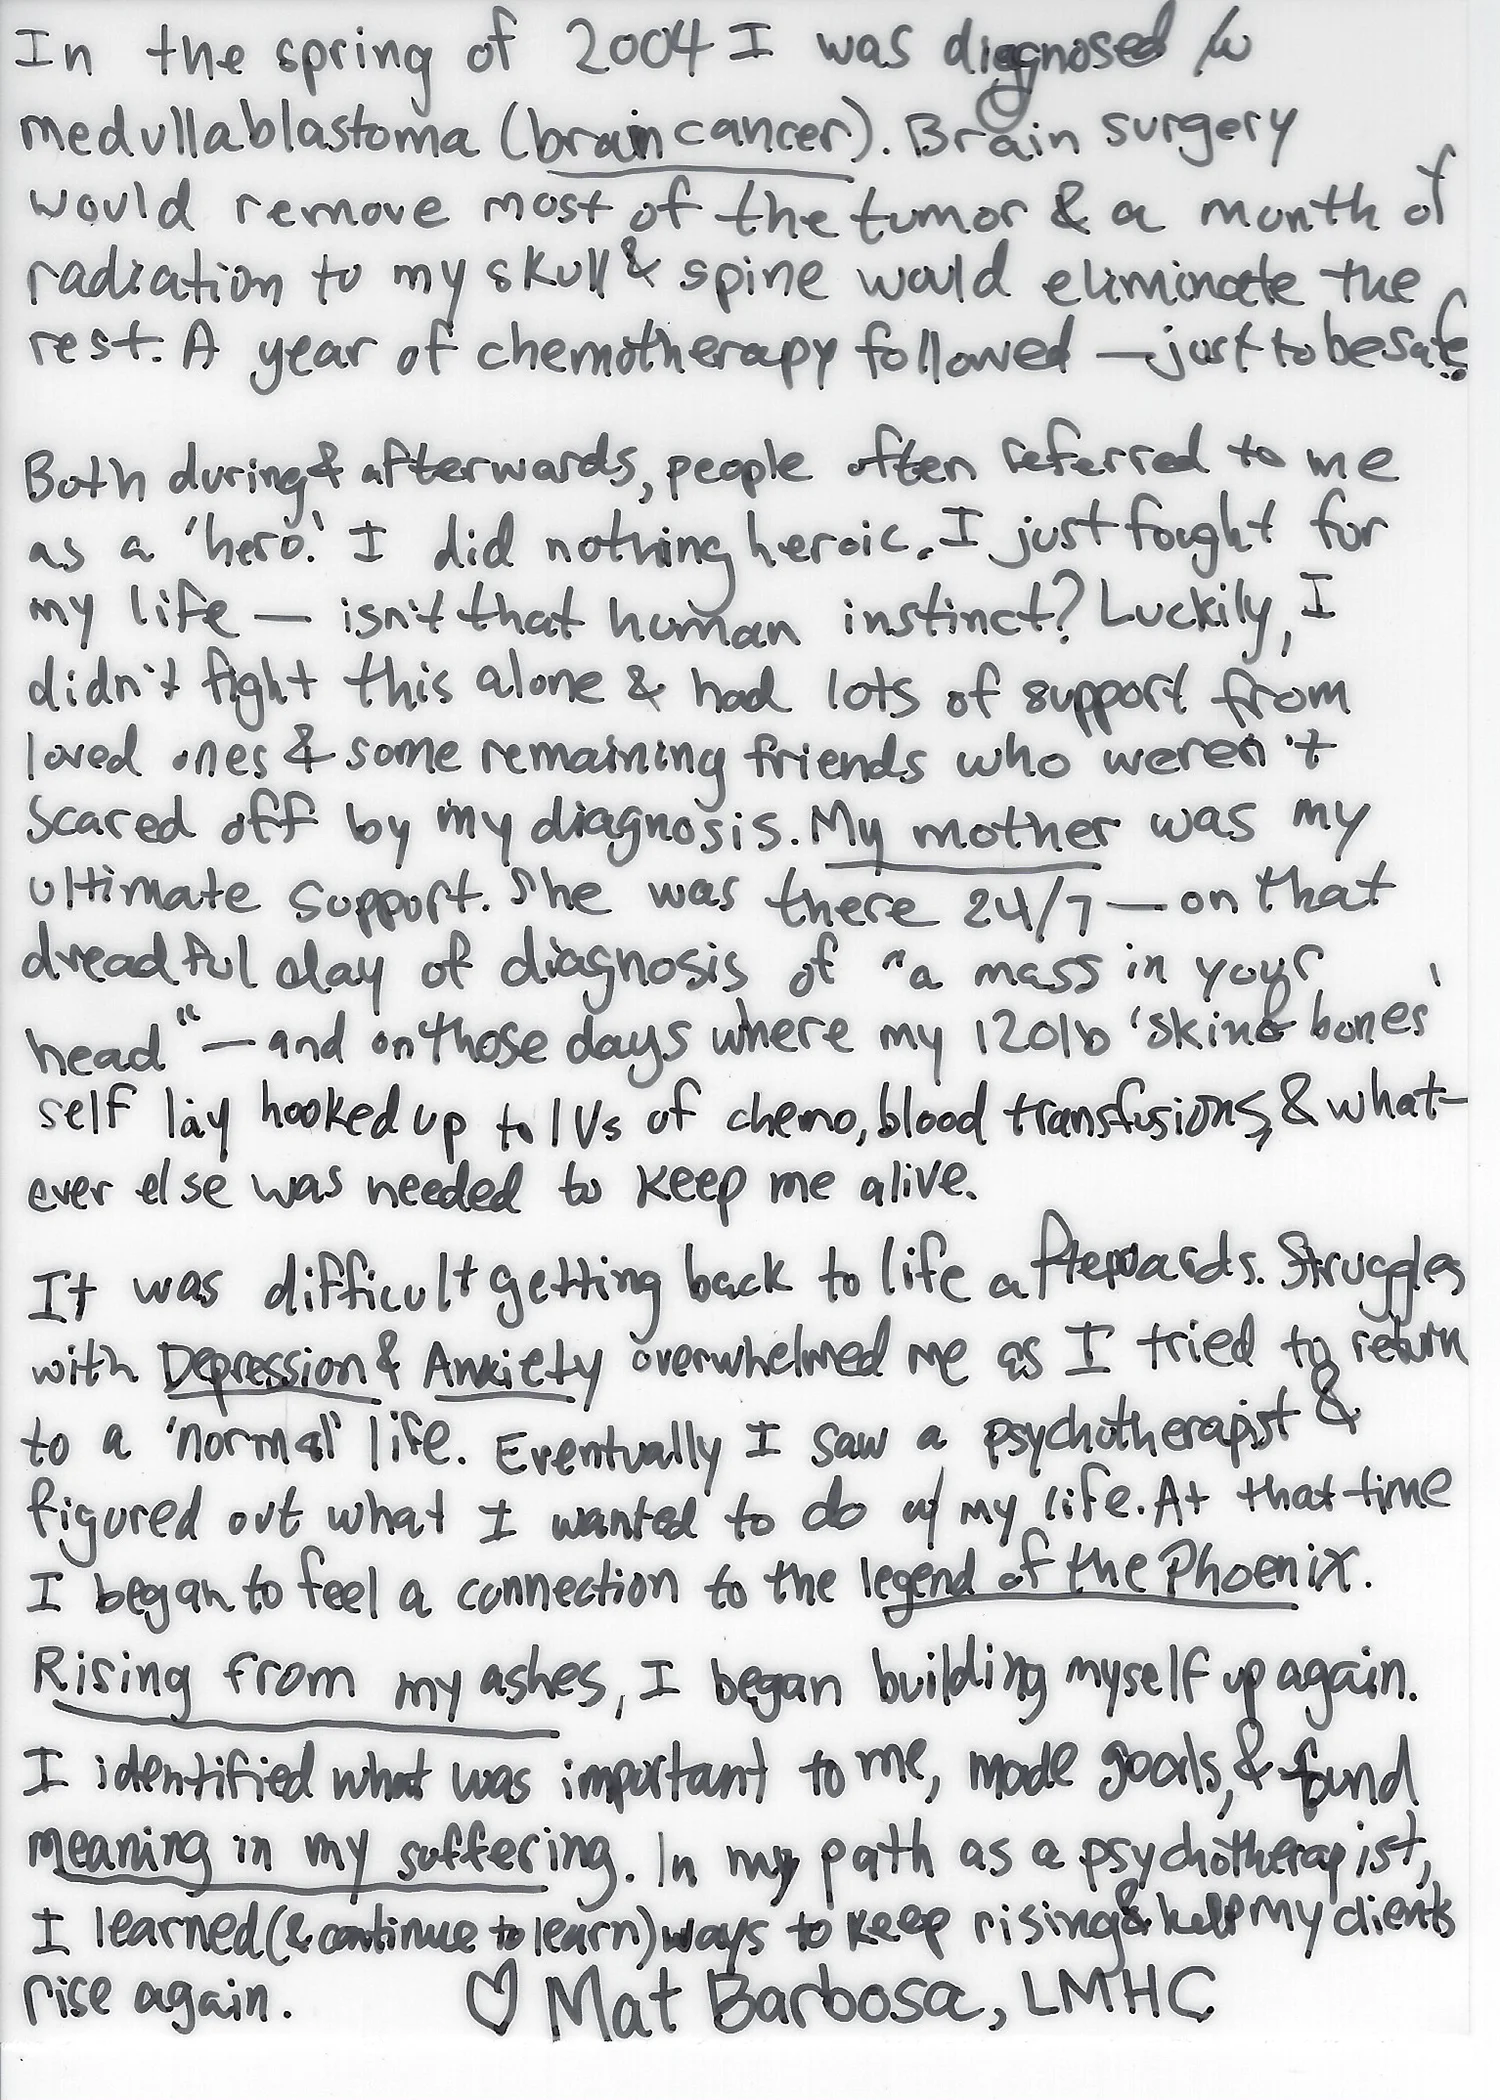 In the spring of 2004 I was diagnosed /w
medullablastoma (brain cancer). Brain surgery
would remove most of the tumor & a month of
radiation to my skull & spine would eliminate the
rest. A year of chemotherapy followed — just to be safe.
Both during & afterwards, people often referred to me
as a 'hero.' I did nothing heroic. I just fought for
my life — isn't that human instinct? Luckily, I
didn't fight this alone & had lots of support from
loved ones & some remaining friends who weren't
scared off by my diagnosis. My mother was my
ultimate support. She was there 24/7 — on that
dreadful day of diagnosis of "a mass in your
head" — and on those days where my 120lb 'skin & bones'
self lay hooked up to IVs of chemo, blood transfusions, & what-
ever else was needed to keep me alive.
It was difficult getting back to life afterwards. Struggles
with Depression & Anxiety overwhelmed me as I tried to return
to a 'normal' life. Eventually I saw a psychotherapist &
figured out what I wanted to do w/ my life. At that time
I began to feel a connection to the legend of the Phoenix.
Rising from my ashes, I began building myself up again.
I identified what was important to me, made goals, & found
meaning in my suffering. In my path as a psychotherapist,
I learned (& continue to learn) ways to keep rising & help my clients
rise again. ♡ Mat Barbosa, LMHC